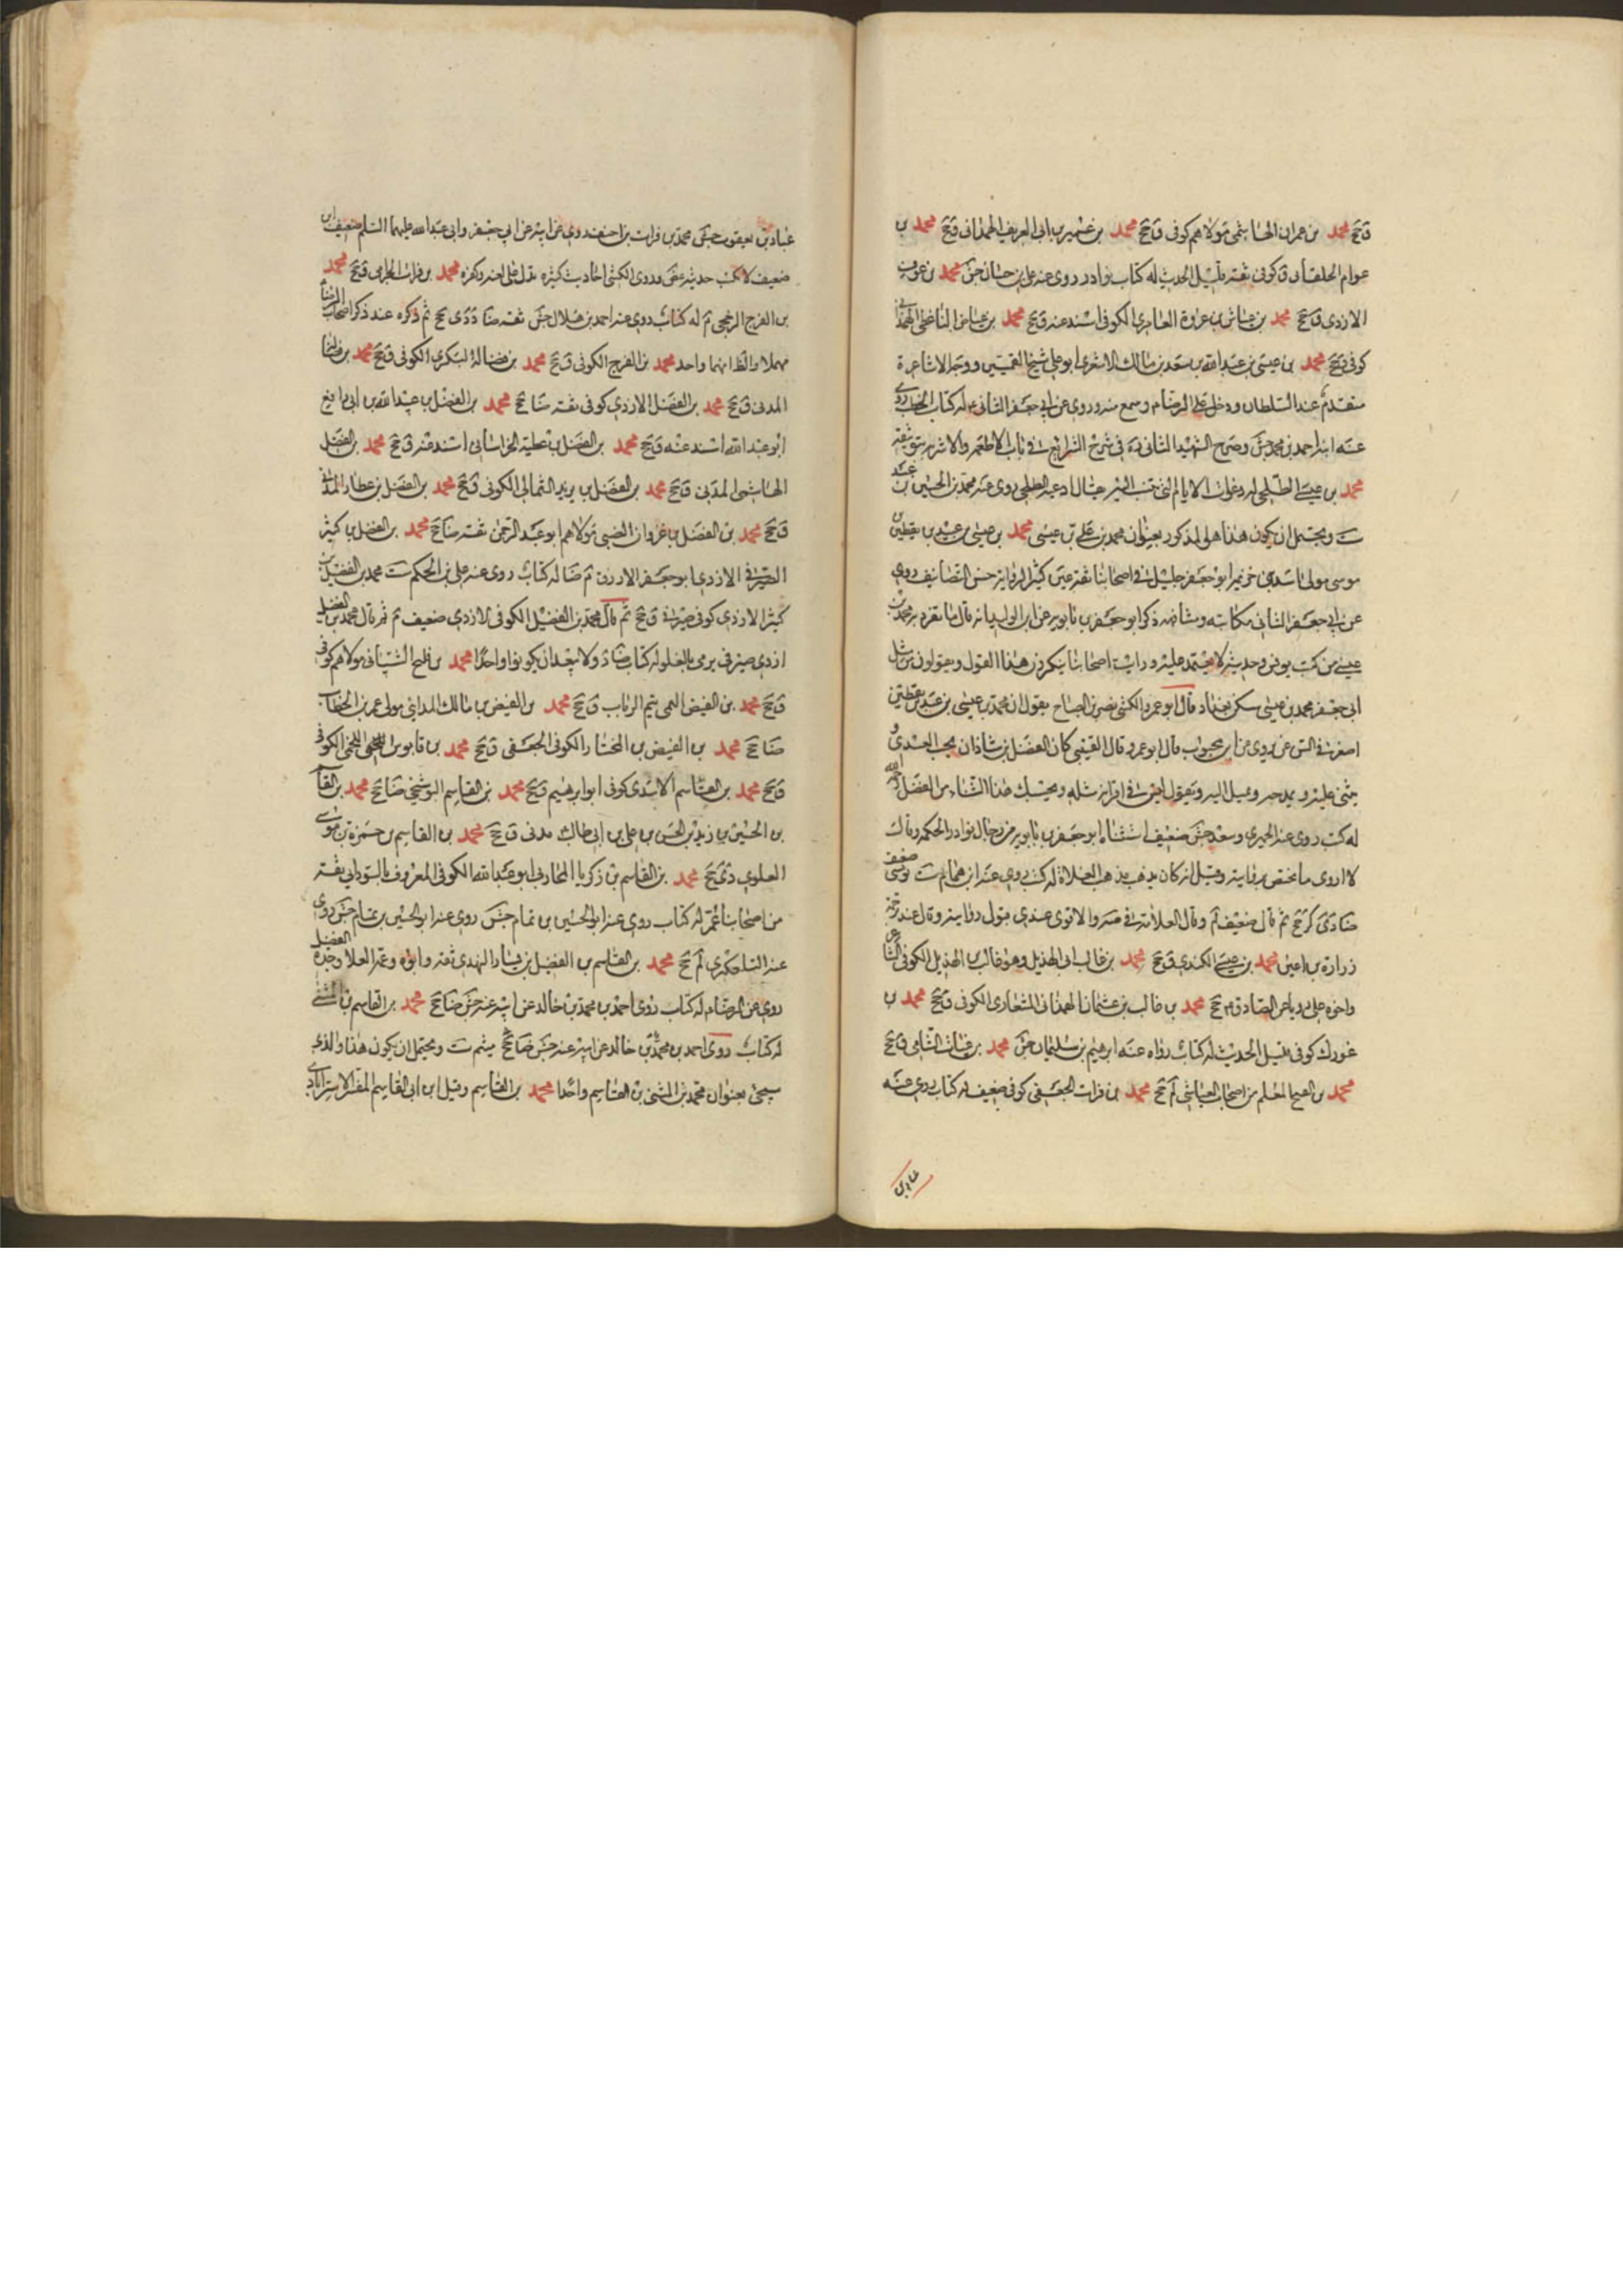 ق جخ محمد بن عمران الهاشمي مولاهم كوفي ق جخ محمد بن عمير بن ابي العريف الهمداني ق جخ محمد بن
عوام الخلقاني ق كوفي ثقة قليل الحديث له كتاب نوادر روى عنه علي بن حسان جش محمد بن عوف
الازدي ق جخ محمد بن عياش بن عروة العامري الكوفي اسند عنه ق جخ محمد بن عياض الناعظي الهمداني
كوفي ق جخ محمد بن عيسى بن عبد الله بن سعد بن مالك الاشعري ابو علي شيخ القميين ووجه الاشاعرة
متقدم عند السلطان ودخل على الرضا م وسمع منه وروى عن ابي جعفر الثاني م له كتاب الخطب روى
عنه ابنه احمد بن محمد جش وصرح الشهيد الثاني ره في شرح الشرايع في باب الاطعمة والاشربة بتوثيقه
محمد بن عيسى الطلحي له دعوات الايام التي تنسب اليه يقال ادعية الطلحي روى عنه محمد بن الحسين بن عبد
ست ويحتمل ان يكون هذا هو المذكور بعنوان محمد بن علي بن عيسى محمد بن عيسى بن عبيد بن يقطين بن
موسى مولى اسد بن خزيمة ابو جعفر جليل في اصحابنا ثقة عين كثير الرواية حسن التصانيف روى
عن ابي جعفر الثاني مكاتبة ومشافهة ذكر ابو جعفر بن بابويه عن ابن الوليد انه قال ما تفرد به محمد بن
عيسى من كتب يونس وحديثه لا يعتمد عليه ورايت اصحابنا ينكرون هذا القول ويقولون من مثل
ابي جعفر محمد بن عيسى سكن بغداد قال ابو عمرو الكشي نصر بن الصباح يقول ان محمد بن عيسى بن عبيد بن يقطين
اصغر في السن عن يروى عن ابن محبوب قال ابو عمرو قال القتيبي كان الفضل بن شاذان يحب العبيدي و
يثني عليه ويمدحه ويميل اليه ويقول ليس في اقرانه مثله وبحسبك هذا الثناء من الفضل رحمه الله
له كتب روى عنه الحميري وسعد جش ضعيف استثناه ابو جعفر بن بابويه من رجال نوادر الحكمة وقال
لا اروى ما يختص بروايته وقيل انه كان يذهب مذهب الغلاة له كتب روى عنه ابن همام م ست يونسي ضعيف
ضا دي كر جخ ثم قال ضعيف لم وقال العلامة في صه والاقوى عندي قبول روايته وقال عند ترجمة
زرارة بن اعين محمد بن عيسى الكندي ق جخ محمد بن غالب ابي الهذيل وهو غالب بن الهذيل الكوفي الشاعر
واخوه علي رويا عن الصادق م جخ محمد بن غالب بن عثمان الهمداني المشعاري الكوفي ق جخ محمد بن
غورك كوفي قليل الحديث له كتاب رواه عنه ابراهيم بن سليمان جش محمد بن فرات الشامي ق جخ
محمد بن الفتح المعلم من اصحاب العياشي لم جخ محمد بن فرات الجعفي كوفي ضعيف له كتاب روى عنه
عباد بن
عباد بن يعقوب جش محمد بن فرات بن احنف روى عن ابيه عن ابي جعفر وابي عبد الله عليهما السلم ضعيف ابن
ضعيف لا يكتب حديثه غض وروى الكشي احاديث كثيرة تدل على لعنه وكفره محمد بن فرات الجرمي ق جخ محمد
بن الفرج الرخجي م له كتاب روى عنه احمد بن هلال جش ثقة ضا د دي جخ ثم ذكره عند ذكر اصحاب الرضا
مهملا والظ انهما واحد محمد بن الفرج الكوفي ق جخ محمد بن فضالة السكري الكوفي ق جخ محمد بن فضالة
المدني ق جخ محمد بن الفضل الازدي كوفي ثقة ضا جخ محمد بن الفضل بن عبيد الله بن ابي رافع
ابو عبد الله اسند عنه ق جخ محمد بن الفضل بن عطية الخراساني اسند عنه ق جخ محمد بن الفضل
الهاشمي المدني ق جخ محمد بن الفضل بن يزيد الثمالي الكوفي ق جخ محمد بن الفضل بن عطار المدني
ق جخ محمد بن الفضيل بن غزوان الضبي مولاهم ابو عبد الرحمن ثقة ضا جخ محمد بن الفضيل بن كثير
الصيرفي الازدي ابو جعفر الازرق م ضا له كتاب روى عنه علي بن الحكم ست محمد بن الفضيل بن
كثير الازدي كوفي صيرفي ق جخ ثم قال محمد بن الفضيل الكوفي الازدي ضعيف م ثم قال محمد بن الفضيل
ازدي صيرفي يرمى بالغلو له كتاب ضا د ولا يبعد ان يكونوا واحدا محمد بن فليح الشيباني مولاهم كوفي
ق جخ محمد بن الفيض التيمي تيم الرباب ق جخ محمد بن الفيض بن مالك المدايني مولى عمر بن الخطاب
ضا جخ محمد بن الفيض بن المختار الكوفي الجعفي ق جخ محمد بن قابوس اللخمي الكوفي
ق جخ محمد بن القاسم الاسدي كوفي ابو ابرهيم ق جخ محمد بن القاسم البوشنجي ضا جخ محمد بن القاسم
بن الحسين بن زيد بن الحسن بن علي بن ابي طالب مدني ق جخ محمد بن القاسم بن حمزة بن موسى
العلوي دي جخ محمد بن القاسم بن زكريا المحاربي ابو عبد الله الكوفي المعروف بالسوداني ثقة
من اصحابنا عمّر له كتاب روى عنه ابو الحسين بن تمام جش روى عنه ابو الحسين بن تمام جش روى
عنه التلعكبري لم جخ محمد بن القاسم بن الفضيل بن يسار النهدي ثقة وابوه وعمه العلا وجده الفضيل
روى عن الرضا م له كتاب روى احمد بن محمد بن خالد عن ابيه عنه جش ضا جخ محمد بن القاسم بن المثنى
له كتاب روى احمد بن محمد بن خالد عن ابيه عنه جش ضا جخ ميثم ست ويحتمل ان يكون هذا والذي
سيجئ بعنوان محمد بن المثنى بن القاسم واحدا محمد بن القاسم وقيل ابن ابي القاسم المفسر الاسترابادي